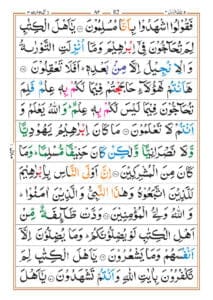 فَقُوۡلُوا اشۡهَدُوۡا بِاَنَّا مُسۡلِمُوۡنَ ۞ يٰۤـاَهۡلَ الۡكِتٰبِ
لِمَ تُحَآجُّوۡنَ فِىۡۤ اِبۡرٰهِيۡمَ وَمَاۤ اُنۡزِلَتِ التَّوۡرٰٮةُ
وَالۡاِنۡجِيۡلُ اِلَّا مِنۡۢ بَعۡدِهٖ ؕ اَفَلَا تَعۡقِلُوۡنَ ۞
هٰۤاَنۡتُمۡ هٰٓؤُلَآءِ حَاجَجۡتُمۡ فِيۡمَا لَكُمۡ بِهٖ عِلۡمٌ فَلِمَ
تُحَآجُّوۡنَ فِيۡمَا لَيۡسَ لَكُمۡ بِهٖ عِلۡمٌ ؕ وَاللّٰهُ يَعۡلَمُ وَ
اَنۡتُمۡ لَا تَعۡلَمُوۡنَ ۞ مَا كَانَ اِبۡرٰهِيۡمُ يَهُوۡدِيًّا
وَّلَا نَصۡرَانِيًّا وَّلٰكِنۡ كَانَ حَنِيۡفًا مُّسۡلِمًا ؕ وَمَا
كَانَ مِنَ الۡمُشۡرِكِيۡنَ ۞ اِنَّ اَوۡلَى النَّاسِ بِاِبۡرٰهِيۡمَ
لَلَّذِيۡنَ اتَّبَعُوۡهُ وَهٰذَا النَّبِىُّ وَالَّذِيۡنَ اٰمَنُوۡا ؕ
وَاللّٰهُ وَلِىُّ الۡمُؤۡمِنِيۡنَ ۞ وَدَّتۡ طَّآئِفَةٌ مِّنۡ
اَهۡلِ الۡكِتٰبِ لَوۡ يُضِلُّوۡنَكُمۡ ؕ وَمَا يُضِلُّوۡنَ اِلَّاۤ
اَنۡفُسَهُمۡ وَمَا يَشۡعُرُوۡنَ ۞ يٰۤـاَهۡلَ الۡكِتٰبِ لِمَ
تَكۡفُرُوۡنَ بِاٰيٰتِ اللّٰهِ وَاَنۡتُمۡ تَشۡهَدُوۡنَ ۞ يٰۤـاَهۡلَ